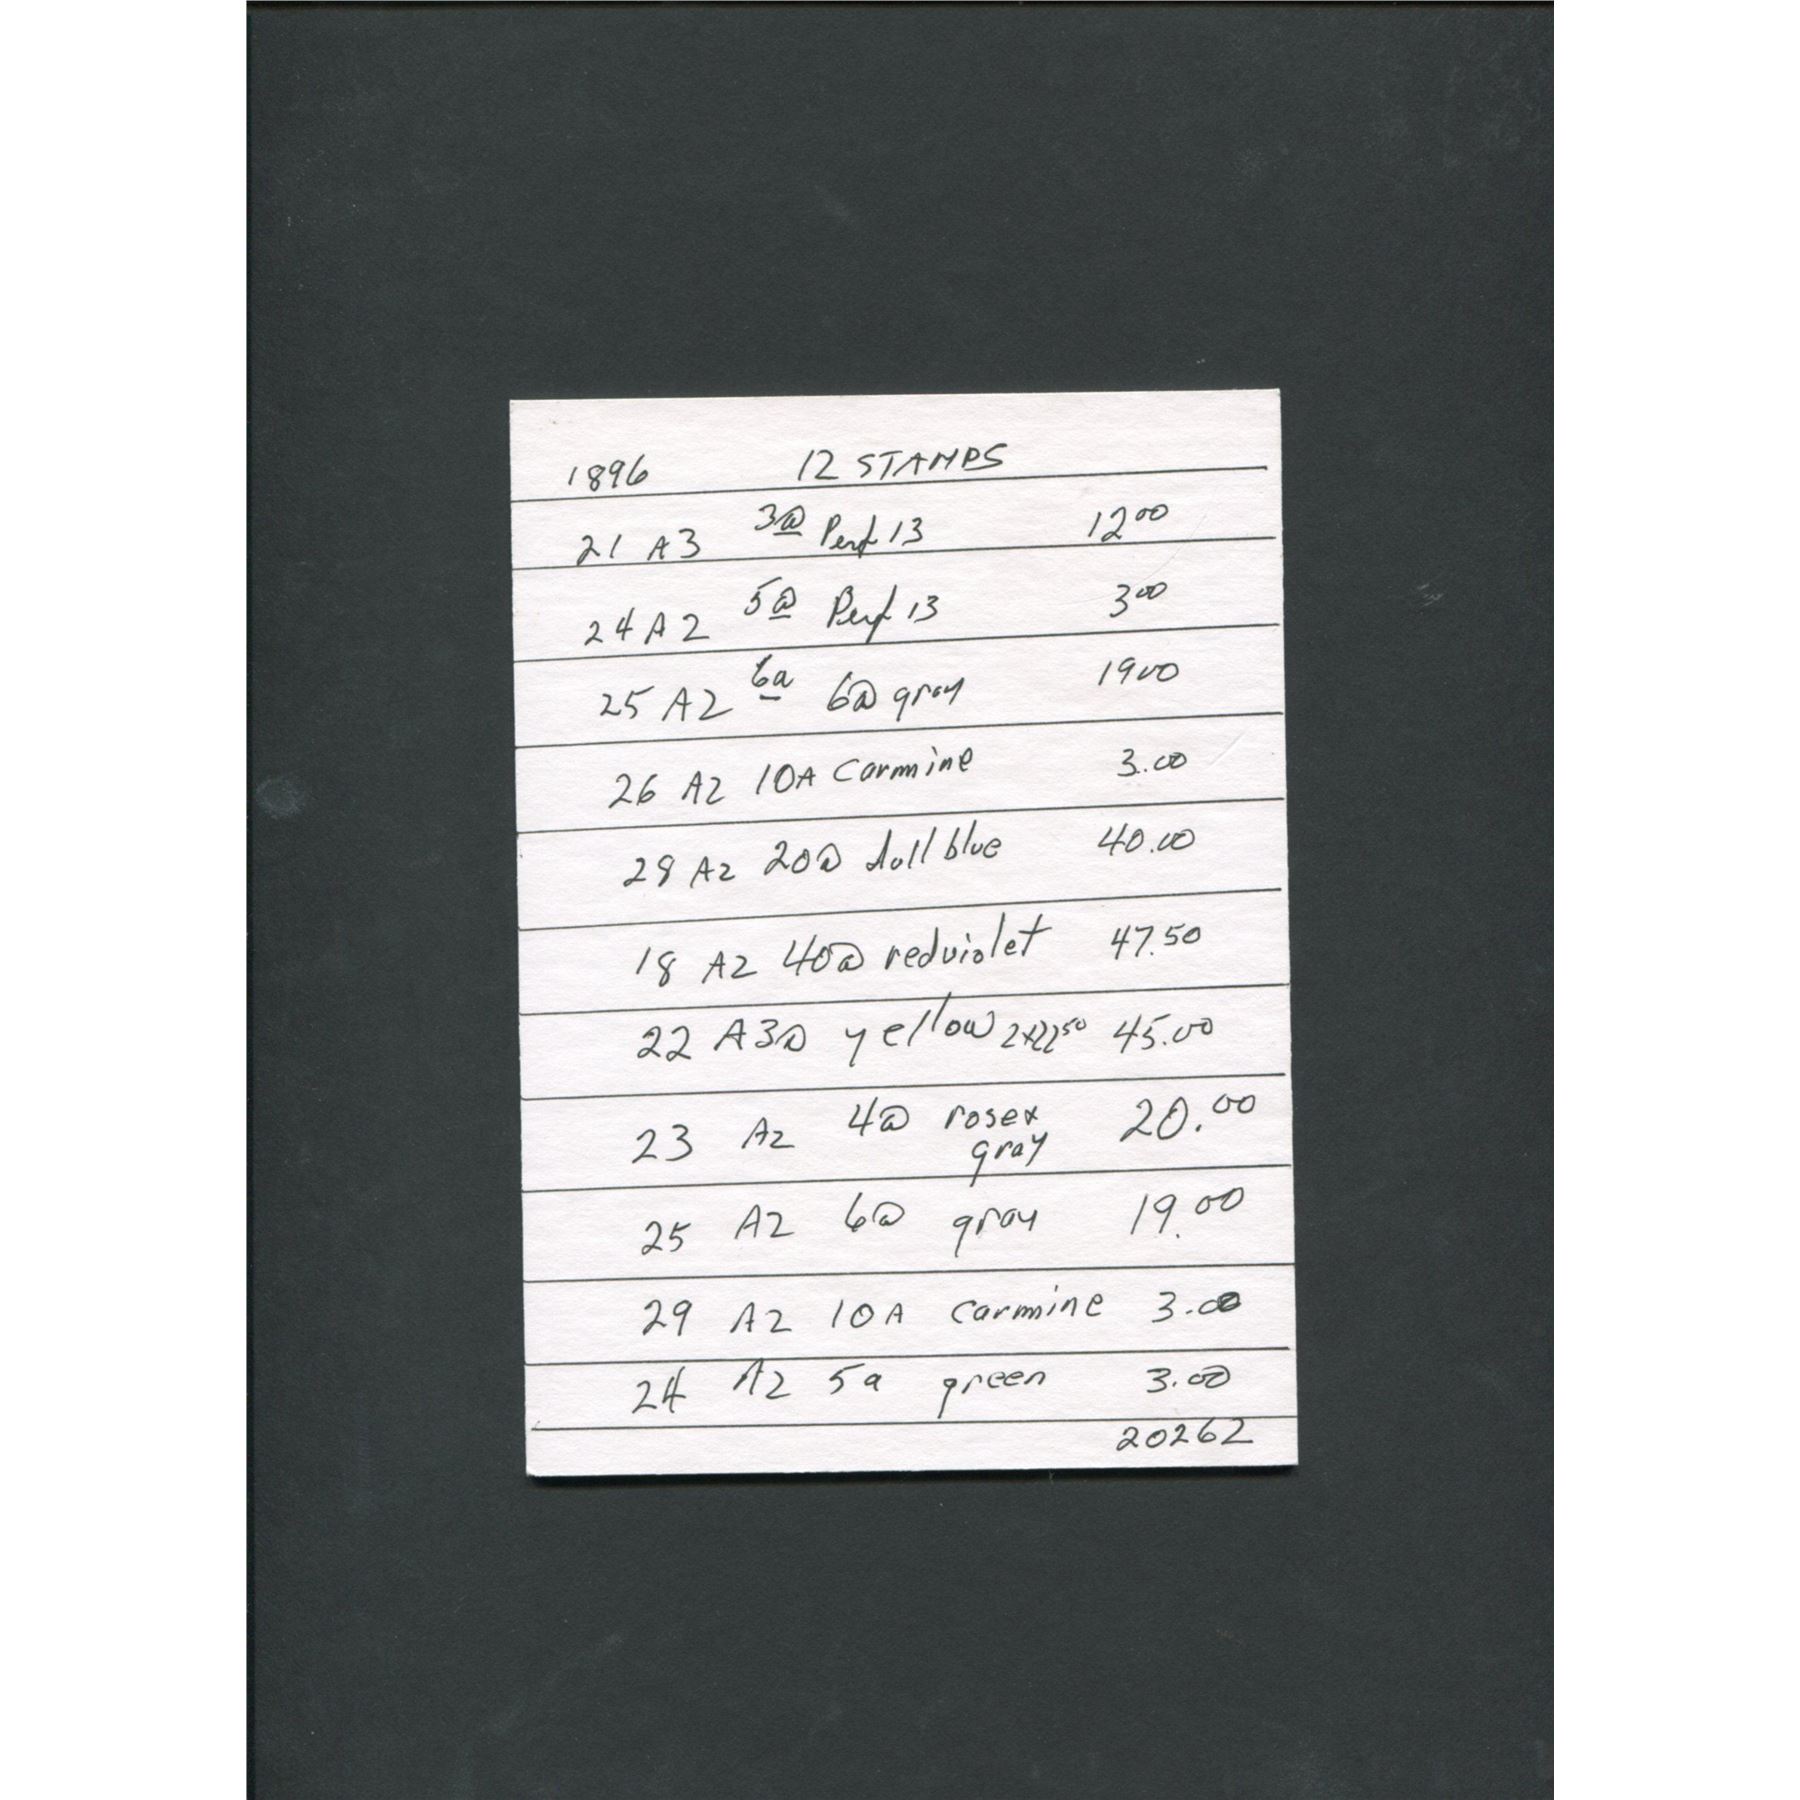 1896 12 STAMPS
21 A3 3a Perf 13 12 00
24 A2 5a Perf 13 3 00
25 A2 6a 6a gray 19 00
26 A2 10A Carmine 3.00
28 A2 20a dull blue 40.00
18 A2 40a redviolet 47.50
22 A3a yellow 2x22 50 45.00
23 A2 4a rose+ 20.00
gray
25 A2 6a gray 19.00
29 A2 10A carmine 3.00
24 A2 5a green 3.00
20262